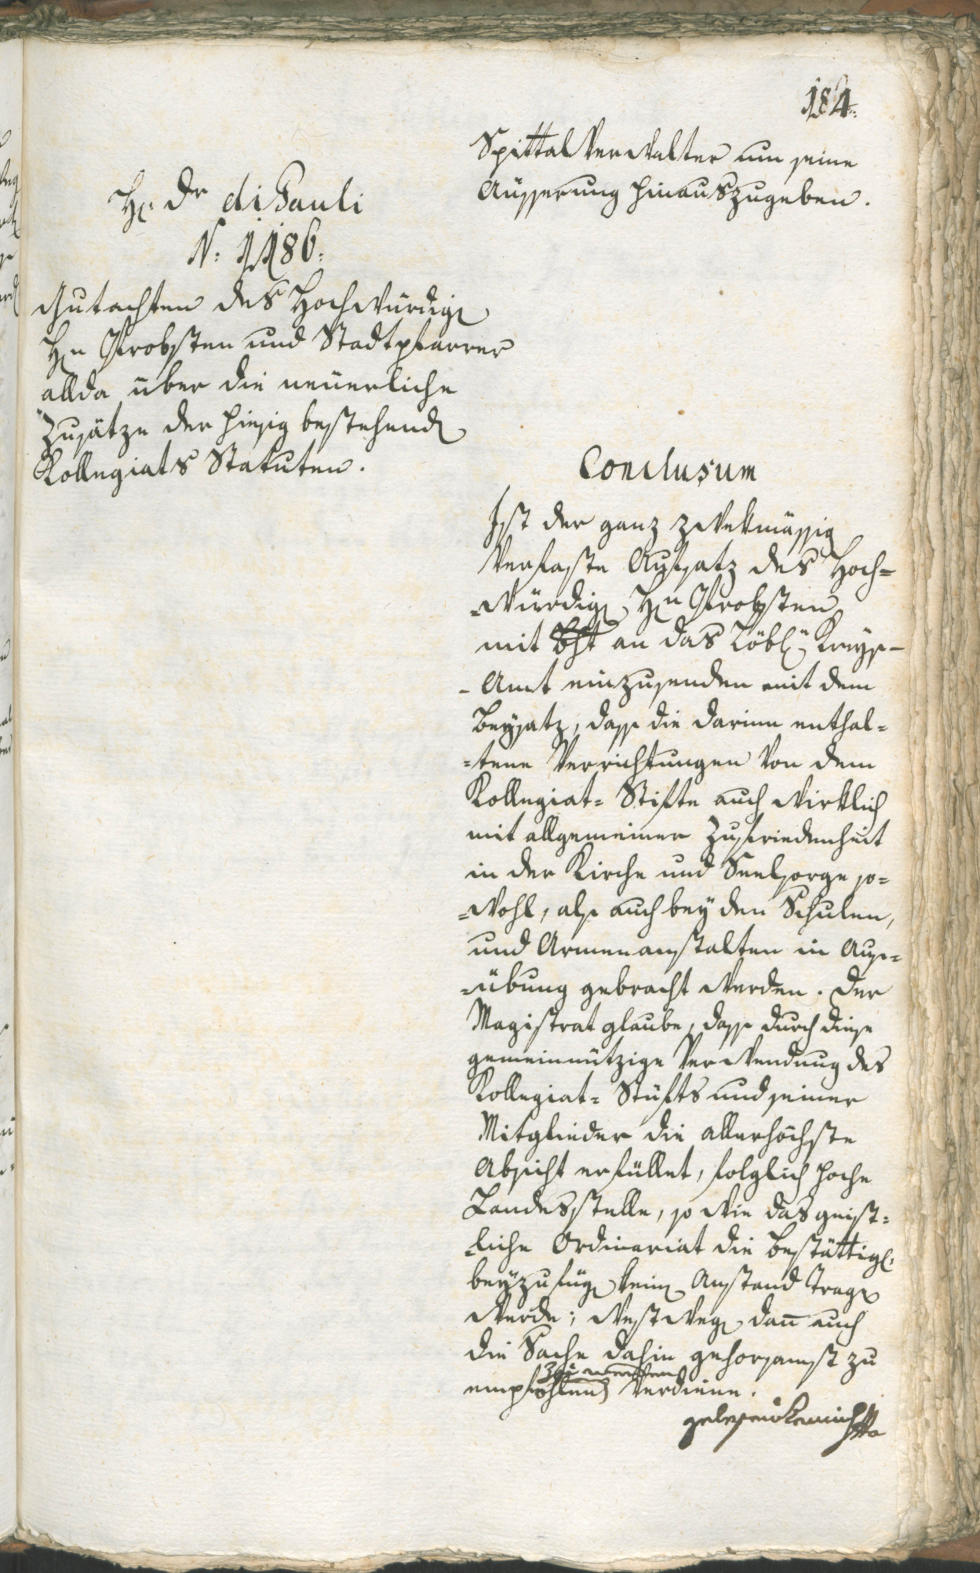 184.
Spittalverwalter um seine
Äüsserung hinauszugeben.
H. Dr di Pauli
N: 1186:
Gutachten des Hochwürdig
Hn Probsten und Stadtpfarrer
allda über die neüerliche
Zusätze der hiesig bestehend
Kollegiats Statuten.
Conclusum
Ist der ganz zwekmässig
verfasste Aufsatz des Hoch=
=würdig Hn Probsten
mit Bht an das Löbl: Kreys=
=Amt einzusenden mit dem
Beysatz, dass die darinn enthal=
=tene Verrichtungen von dem
Kollegiat= Stifte auch wirklich
mit allgemeiner Zufriedenheit
in der Kirche und Seelsorge so=
=wohl, als auch bey den Schulen,
und Armenanstalten in Aus=
=übung gebracht werden. Der
Magistrat glaube, dass durch diese
gemeinnützige Verwendung des
Kollegiat= Stüfts und seiner
Mitglieder die allerhöchste
Absicht erfüllet, folglich hohe
Landesstelle, so wie das geist=
=liche Ordinariat die Bestättig:
beyzufüg kein Anstand trag
werde; westweg dañ auch
die Sache dahin gehorsamst zu
zu werden
empfohlen verdiene.